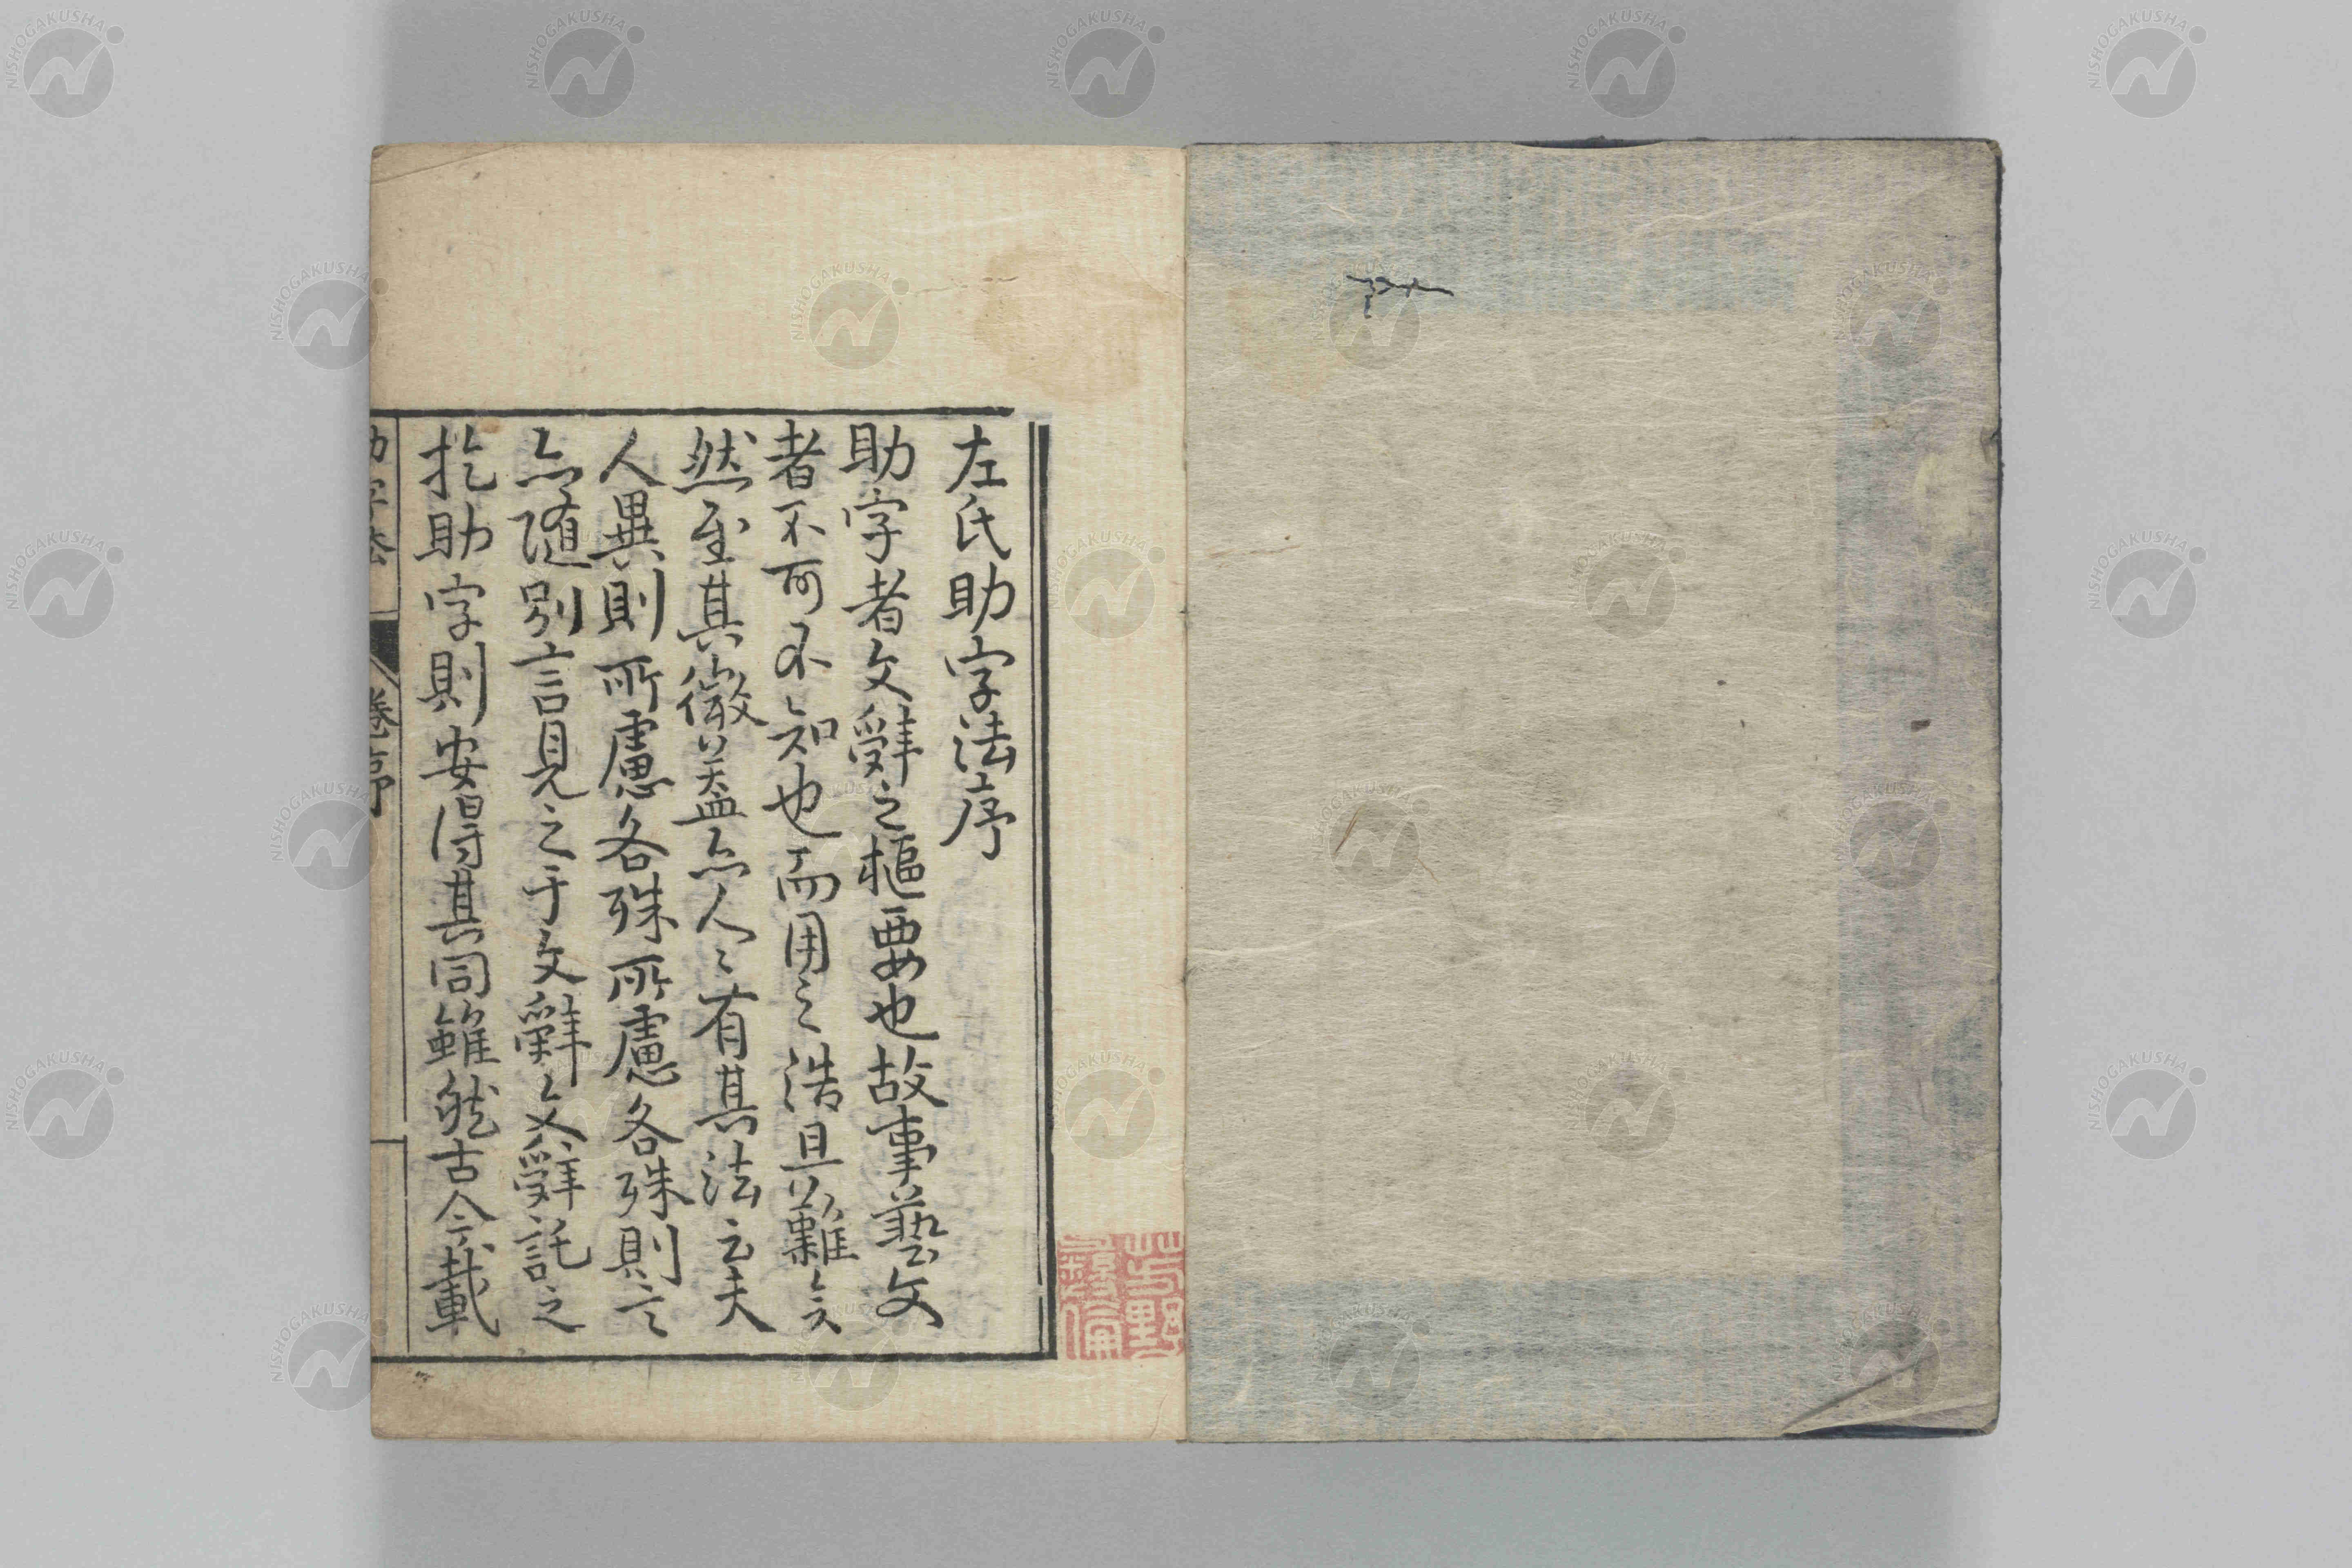 左氏助字法序
助字者文辭之樞要也故事藝文
者不可不知也而用之浩且難矣
然至其微蓋亦人〻有其法云夫
人異則所慮各殊所慮各殊則言
亦隨別言見之于文辭文辭託之
於助字則安得其同雖然古今載
卷序
NISHOGAKUSHA